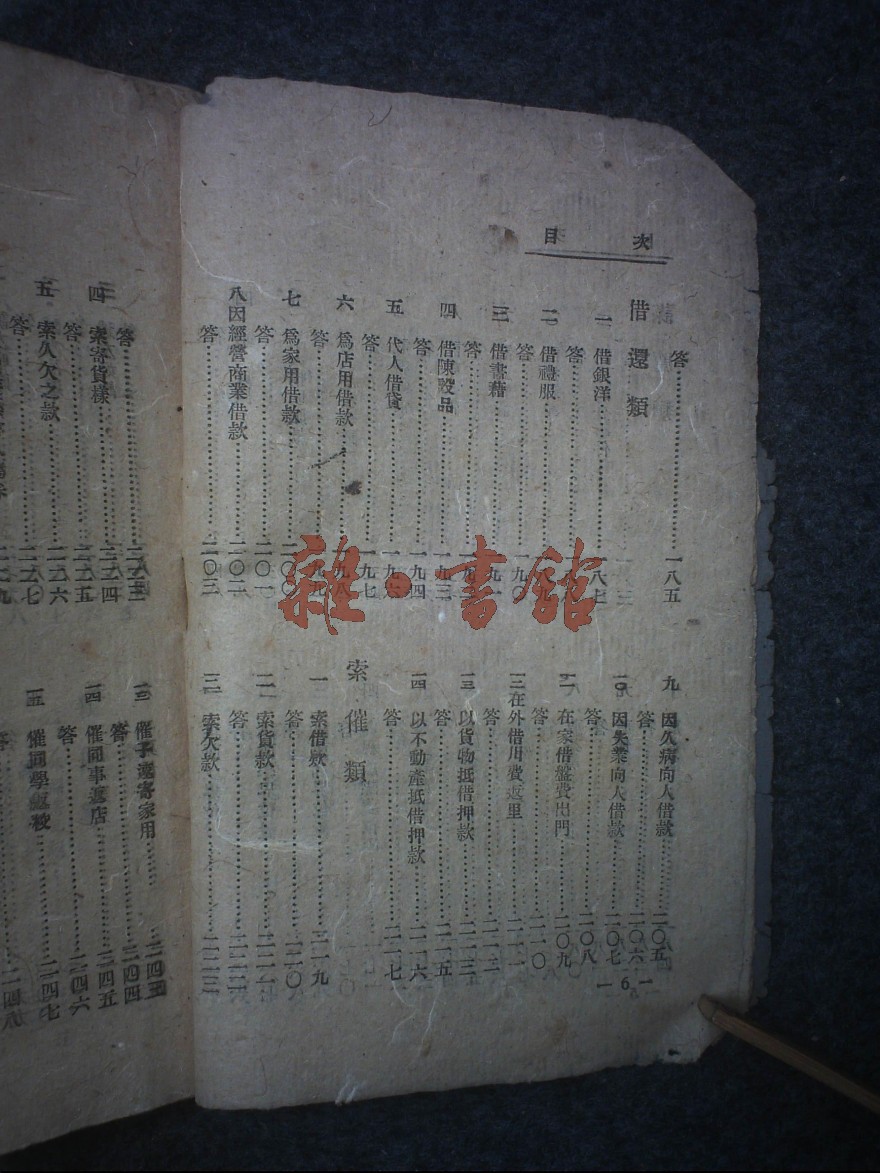 目次
答……一八五
借還類
一 借銀洋……一八七
答
二 借禮服
答……一九〇
三 借書藉……一九一
答
四 借陳設品……一九三
答……一九四
五 代人借貸
答……一九七
六 爲店用借款……一九八
答……一九九
七 爲家用借款……二〇〇
答……二〇一
八 因經營商業借款……二〇二
答……二〇三
九 因久病向人借款……二〇五
答……二〇六
一〇 因失業向人借款……二〇七
答……二〇八
二 在家借盤費出門……二〇九
答……二一〇
三 在外借用費返里
答
一三 以貨物抵借押款
答
一四 以不動產抵借押款……二一六
答……二一七
索催類
一 索借款……二一九
答……二二〇
二 索貨款……二二一
答……二二二
三 索欠款……二二三
—6—
答
四 索寄貨樣……二八四
答……二八五
五 索久欠之款……二八六
答……二八七
一三 催子速寄家用……二四三
答……二四四
一四 催同事返店……二四五
答……二四六
一五 催同學返校……二四七
答……二四八
雜·書館